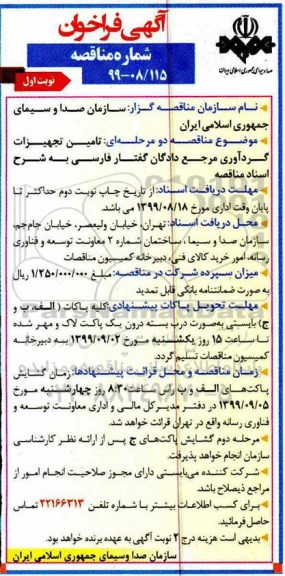 آگهی فراخوان
شماره مناقصه
۹۹-۰۸/۱۱۵
نوبت اول
صدا و سیمای جمهوری اسلامی ایران
نام سازمان مناقصه گزار: سازمان صدا و سیمای
جمهوری اسلامی ایران
موضوع مناقصه دو مرحله‌ای: تامین تجهیزات
گردآوری مرجع دادگان گفتار فارسی به شرح
اسناد مناقصه
مهلت دریافت اسناد: از تاریخ چاپ نوبت دوم حداکثر تا
پایان وقت اداری مورخ ۱۳۹۹/۰۸/۱۸ می باشد.
محل دریافت اسناد: تهران، خیابان ولیعصر، خیابان جام‌جم،
سازمان صدا و سیما، ساختمان شماره ۲ معاونت توسعه و فناوری
رسانه، امور خرید کالای فنی، دبیرخانه کمیسیون مناقصات
میزان سپرده شرکت در مناقصه: مبلغ ۱/۲۵۰/۰۰۰/۰۰۰ ریال
به صورت ضمانتنامه بانکی قابل تمدید
مهلت تحویل پاکات پیشنهادی: کلیه پاکات (الف، ب و
ج) بایستی به‌صورت درب بسته درون یک پاکت لاک و مهر شده
تا ساعت ۱۵ روز یکشنبه مورخ ۱۳۹۹/۰۹/۰۲ به دبیرخانه
کمیسیون مناقصات تسلیم گردد.
زمان گشایش و محل قرائت پیشنهادها: زمان گشایش
پاکت‌های الف و ب راس ساعت ۸:۳۰ روز چهارشنبه مورخ
۱۳۹۹/۰۹/۰۵ در دفتر مدیرکل مالی و اداری معاونت توسعه و
فناوری رسانه واقع در تهران قرائت خواهد شد.
مرحله دوم گشایش پاکت‌های ج پس از ارائه نظر کارشناسی
سازمان انجام خواهد پذیرفت.
شرکت کننده می‌بایستی دارای مجوز صلاحیت انجام امور از
مراجع ذیصلاح باشد.
برای کسب اطلاعات بیشتر با شماره تلفن ۲۲۱۶۶۳۱۳ تماس
حاصل فرمائید.
بدیهی است هزینه درج ۲ نوبت آگهی به عهده برنده خواهد بود.
سازمان صدا وسیمای جمهوری اسلامی ایران